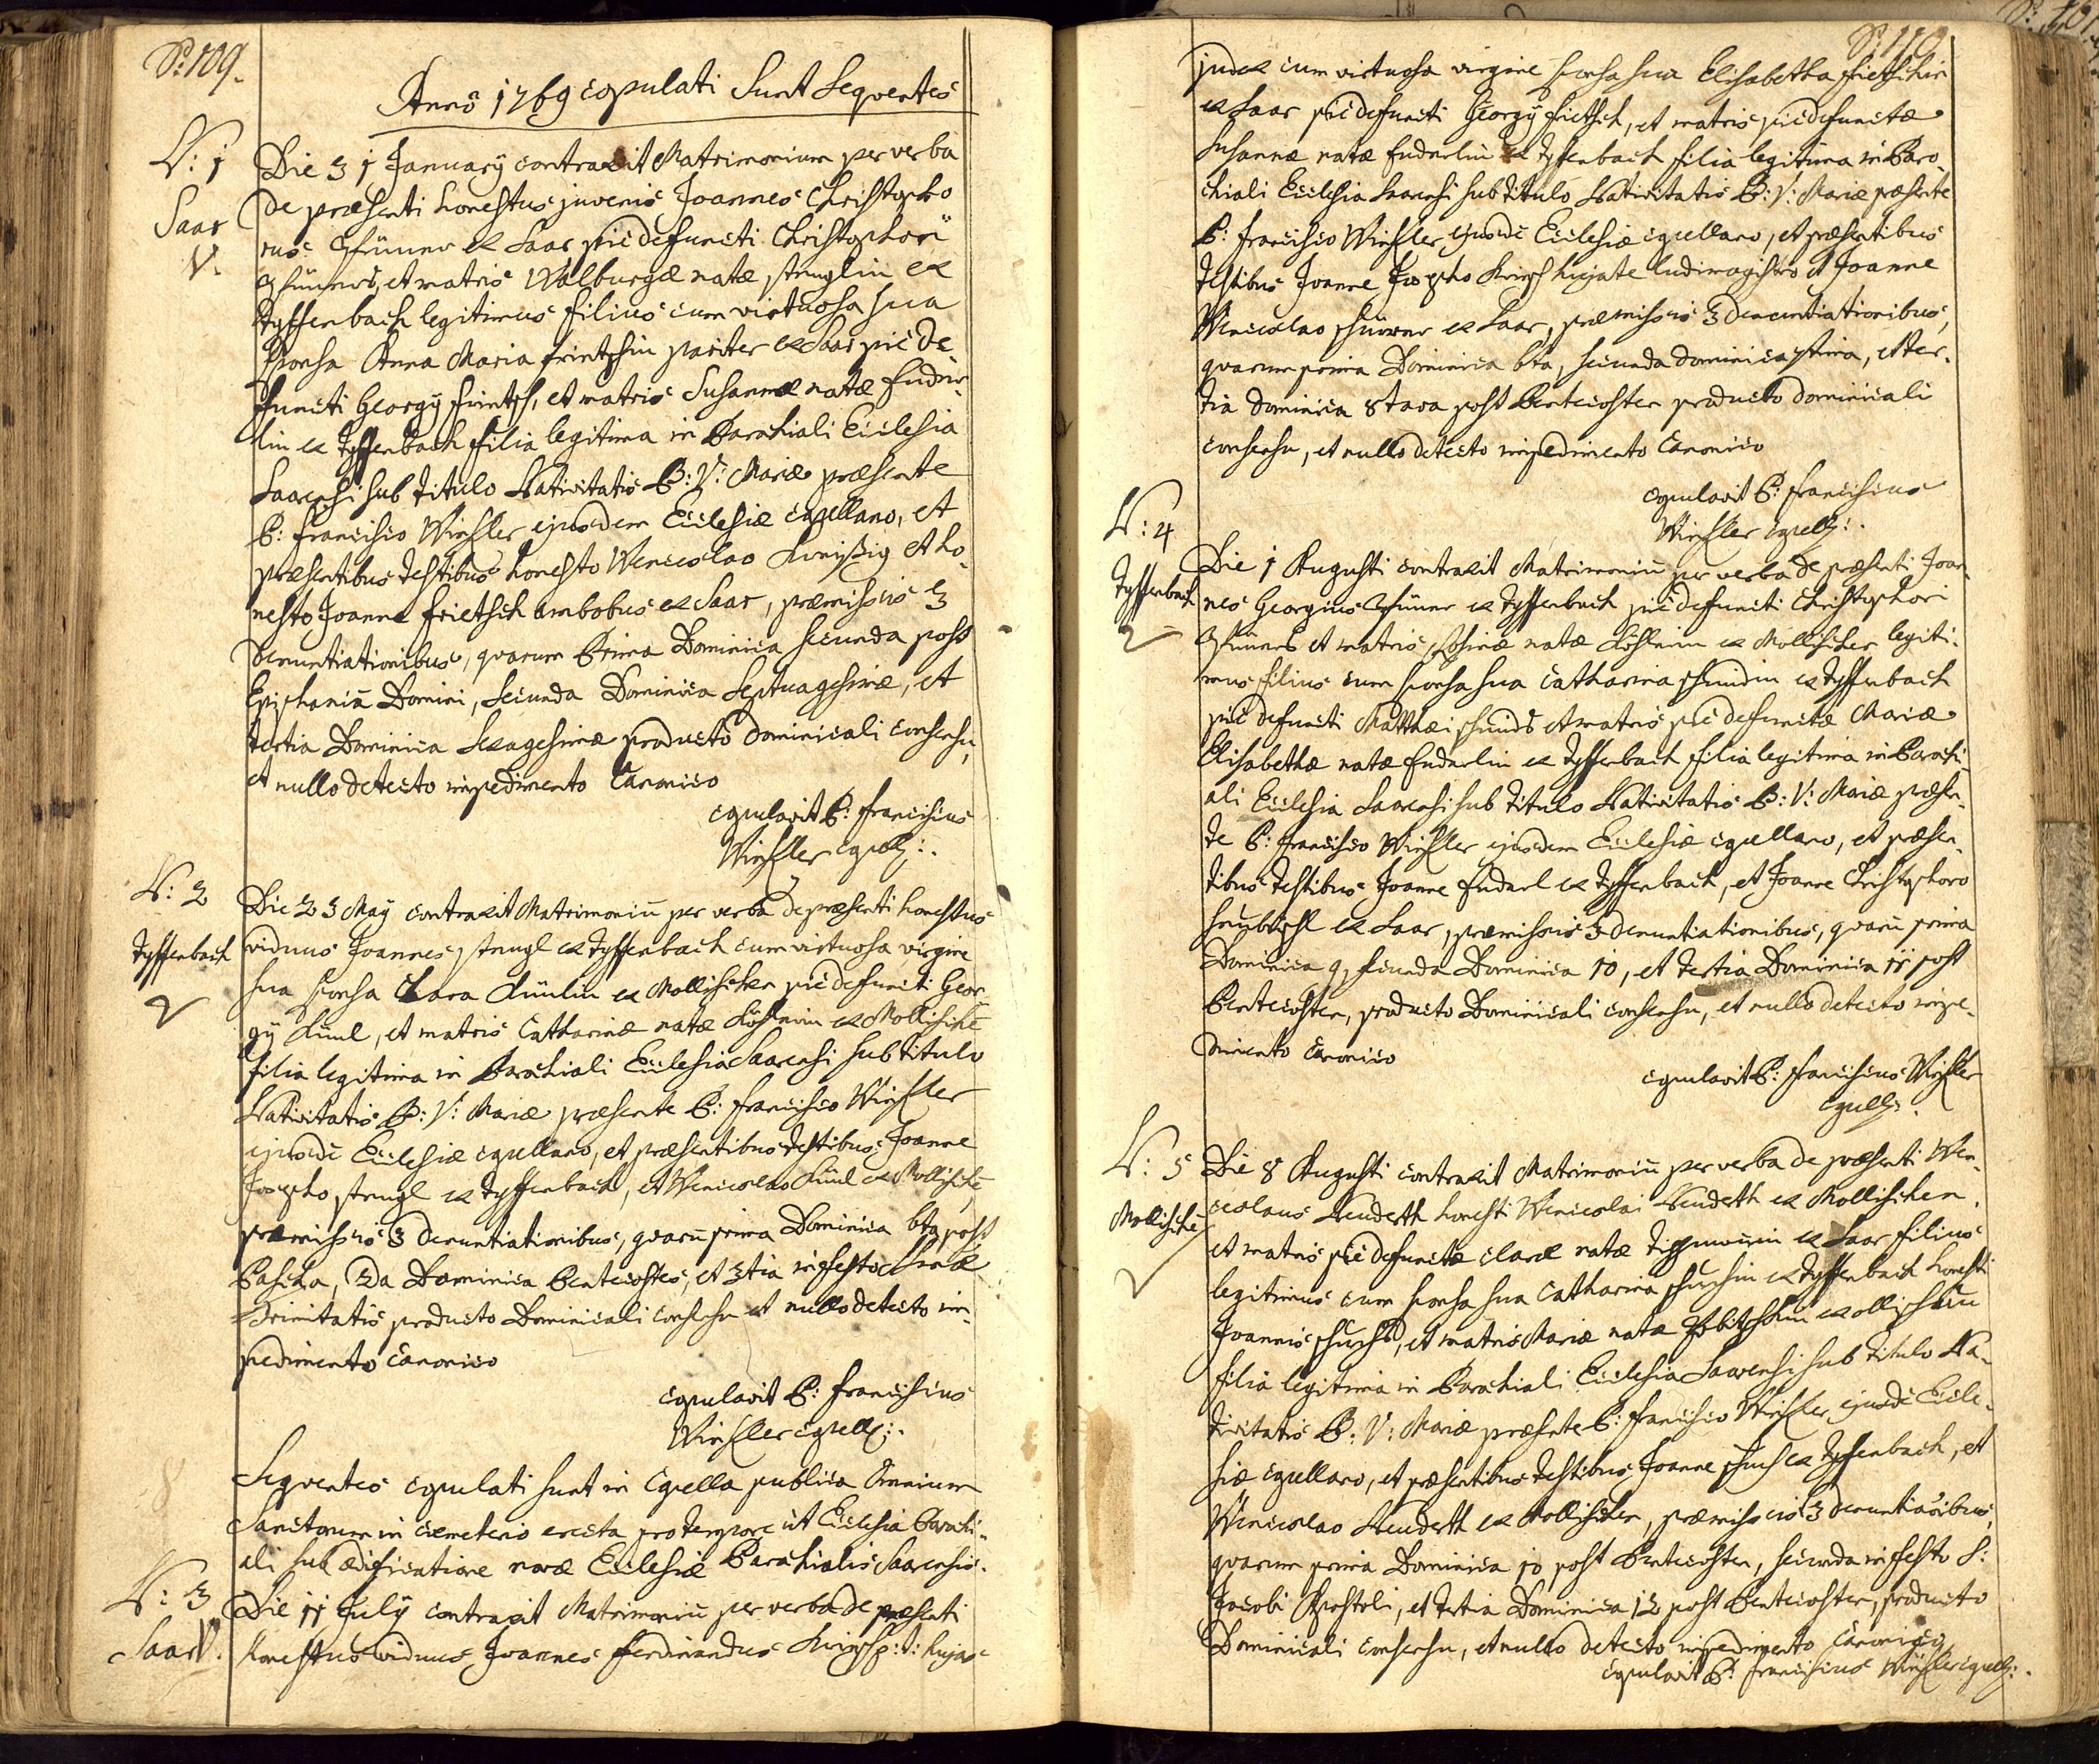 P: 109.
Anno 1769 copulati Sunt Sequentes
N: 1
Saar
V.
Die 31 January contraxit Matrimonium per verba
de præsenti honestus juvenis Joannes Christopho
rus ex Saar pie defuncti Christophori
et matris Walburgæ natæ stenglin ex
Tyffenbach legitimus filius cum virtuosa sua
sponsa Anna Maria frintschin pariter ex Saar pie de
functi Georgÿ frintsch, et matris Susannæ natæ Endur-
lin ex Tyffenbach filia legitima in Parochiali Ecclesia
Saarensi sub titulo Nativitatis B: V: Mariæ præsente
P: Francisco Winkler ejusdem Ecclesiæ capellano, et
præsentibus testibus honesto Wenceslao et ho-
nesto Joanne frietsch ambobus ex Saar, præmissis 3
denuntiationibus, quarum Prima Dominica secunda post
Epiphaniã Domini, secunda Dominica Septuagesimæ, et
tertia Dominica Sexagesimæ producto dominicali consensu,
et nullo detecto impedimento Canonico
copulavit P: Franciscus
Winkler capell:.
N: 2
Tyffenbach
V
Die 23 Maÿ contraxit Matrimoniũ per verba de præsenti honestus
viduus Joannes stengl ex Tyffenbach cum virtuosa virgine
sua sponsa Clara Künlin ex Mollischen pie defuncti Geor-
gÿ Künl, et matris Catharinæ natæ ex Mollischẽ
filia legitima in Parochiali Ecclesia Saarensi sub titulo
Nativitatis B: V: Mariæ præsente P: Francisco Winkler
ejusdẽ Ecclesiæ capellano, et præsentibus testibus: Joanne
Josepho stengl ex Tyffenbach, et Wenceslao Künl ex Mollischẽ
præmissis 3 denuntiationibus, quarũ prima Dominica 6ta post
Pascha, 2da Dominica Pentecostes, et 3tia in festo SSmæ
Trinitatis producto Dominicali consensu et nullo detecto im-
pedimento Canonico
copulavit P: Franciscus
Winkler capell:.
Sequentes copulati sunt in Capella publica Omnium
Sanctorum in cæmeterio erecta pro tempore ut Ecclesia Parochi-
ali sub ædificatione novæ Ecclesiæ Parochialis Saarensis.
N: 3
Saar V.
Die 11 July contraxit Matrimoniũ per verba de præsenti
honestus viduus Joannes Ferdinandus p: t: hujas
P: 110
judex cum virtuosa virgine sponsa sua Elisabetha frietschin
ex Saar pie defuncti Georgÿ frietsch, et matris pie defunctæ
Susannæ natæ Endurlin ex Tyffenbach filia legitima in Paro-
chiali Ecclesia Saarensi sub titulo Nativitatis B: V: Mariæ præsente
P: Francisco Winkler ejusdẽ Ecclesiæ capellano, et præsentibus
testibus Joanne Josepho hujate ludimagistro et Joanne
Wenceslao ex Saar, præmissis 3 denuntiationibus,
quarum prima Dominica 6ta, secunda dominica 7tima, et ter-
tia dominica 8tava post Pentecosten producto dominicali
consensu, et nullo detecto impedimento Canonico
copulavit P: Franciscus
Winkler capell:.
N: 4
Tyffenbach
V
Die 1 Augusti contraxit Matrimoniũ per verba de præsenti Joan-
nes Georgius ex Tyffenbach pie defuncti Christophori
et matris Rosinæ natæ ex Mollischen legiti-
mus filius cum sponsa sua Catharina schmidin ex Tyffenbach
pie defuncti Matthæi schmids et matris pie defunctæ Mariæ
Elisabethæ natæ Endurlin ex Tyffenbach filia legitima in Parochi-
ali Ecclesia Saarensi sub titulo Nativitatis B: V: Mariæ præsen-
te P: Francisco Winkler ejusdem Ecclesiæ capellano, et præsen-
tibus testibus Joanne Endurl ex Tyffenbach, et Joanne Christophoro
ex Saar, præmissis 3 denuntiationibus, quarũ prima
Dominica 9, secunda Dominica 10, et tertia Dominica 11 post
Pentecosten, producto Dominicali consensu, et nullo detecto impe-
dimento Canonico
copulavit P: Franciscus Winkler
capell:.
N: 5
Mollischẽ
V
Die 8 Augusti contraxit Matrimoniũ per verba de præsenti Wen-
ceslaus Neuderth honesti Wenceslai Neuderth ex Mollischen
et matris pie defunctæ claræ natæ ex Saar filius
legitimus cum sponsa sua Catharina ex Tyffenbach honesti
Joannis et matris Mariæ natæ ex
filia legitima in Parochiali Ecclesia Saarensi sub titulo Na-
tivitatis B: V: Mariæ præsente P: Francisco Winkler ejusdẽ Eccle-
siæ capellano, et præsentibus testibus Joanne ex Tyffenbach, et
Wenceslao Neuderth ex Mollischen, præmissis 3 denuntiaõibus,
quarum prima Dominica 10 post Pentecosten, secunda in festo S:
Jacobi Apostoli, et tertia Dominica 12 post Pentecosten, producto
Dominicali consensu, et nullo detecto impedimento Canonico
copulavit P: Franciscus Winkler capell:.